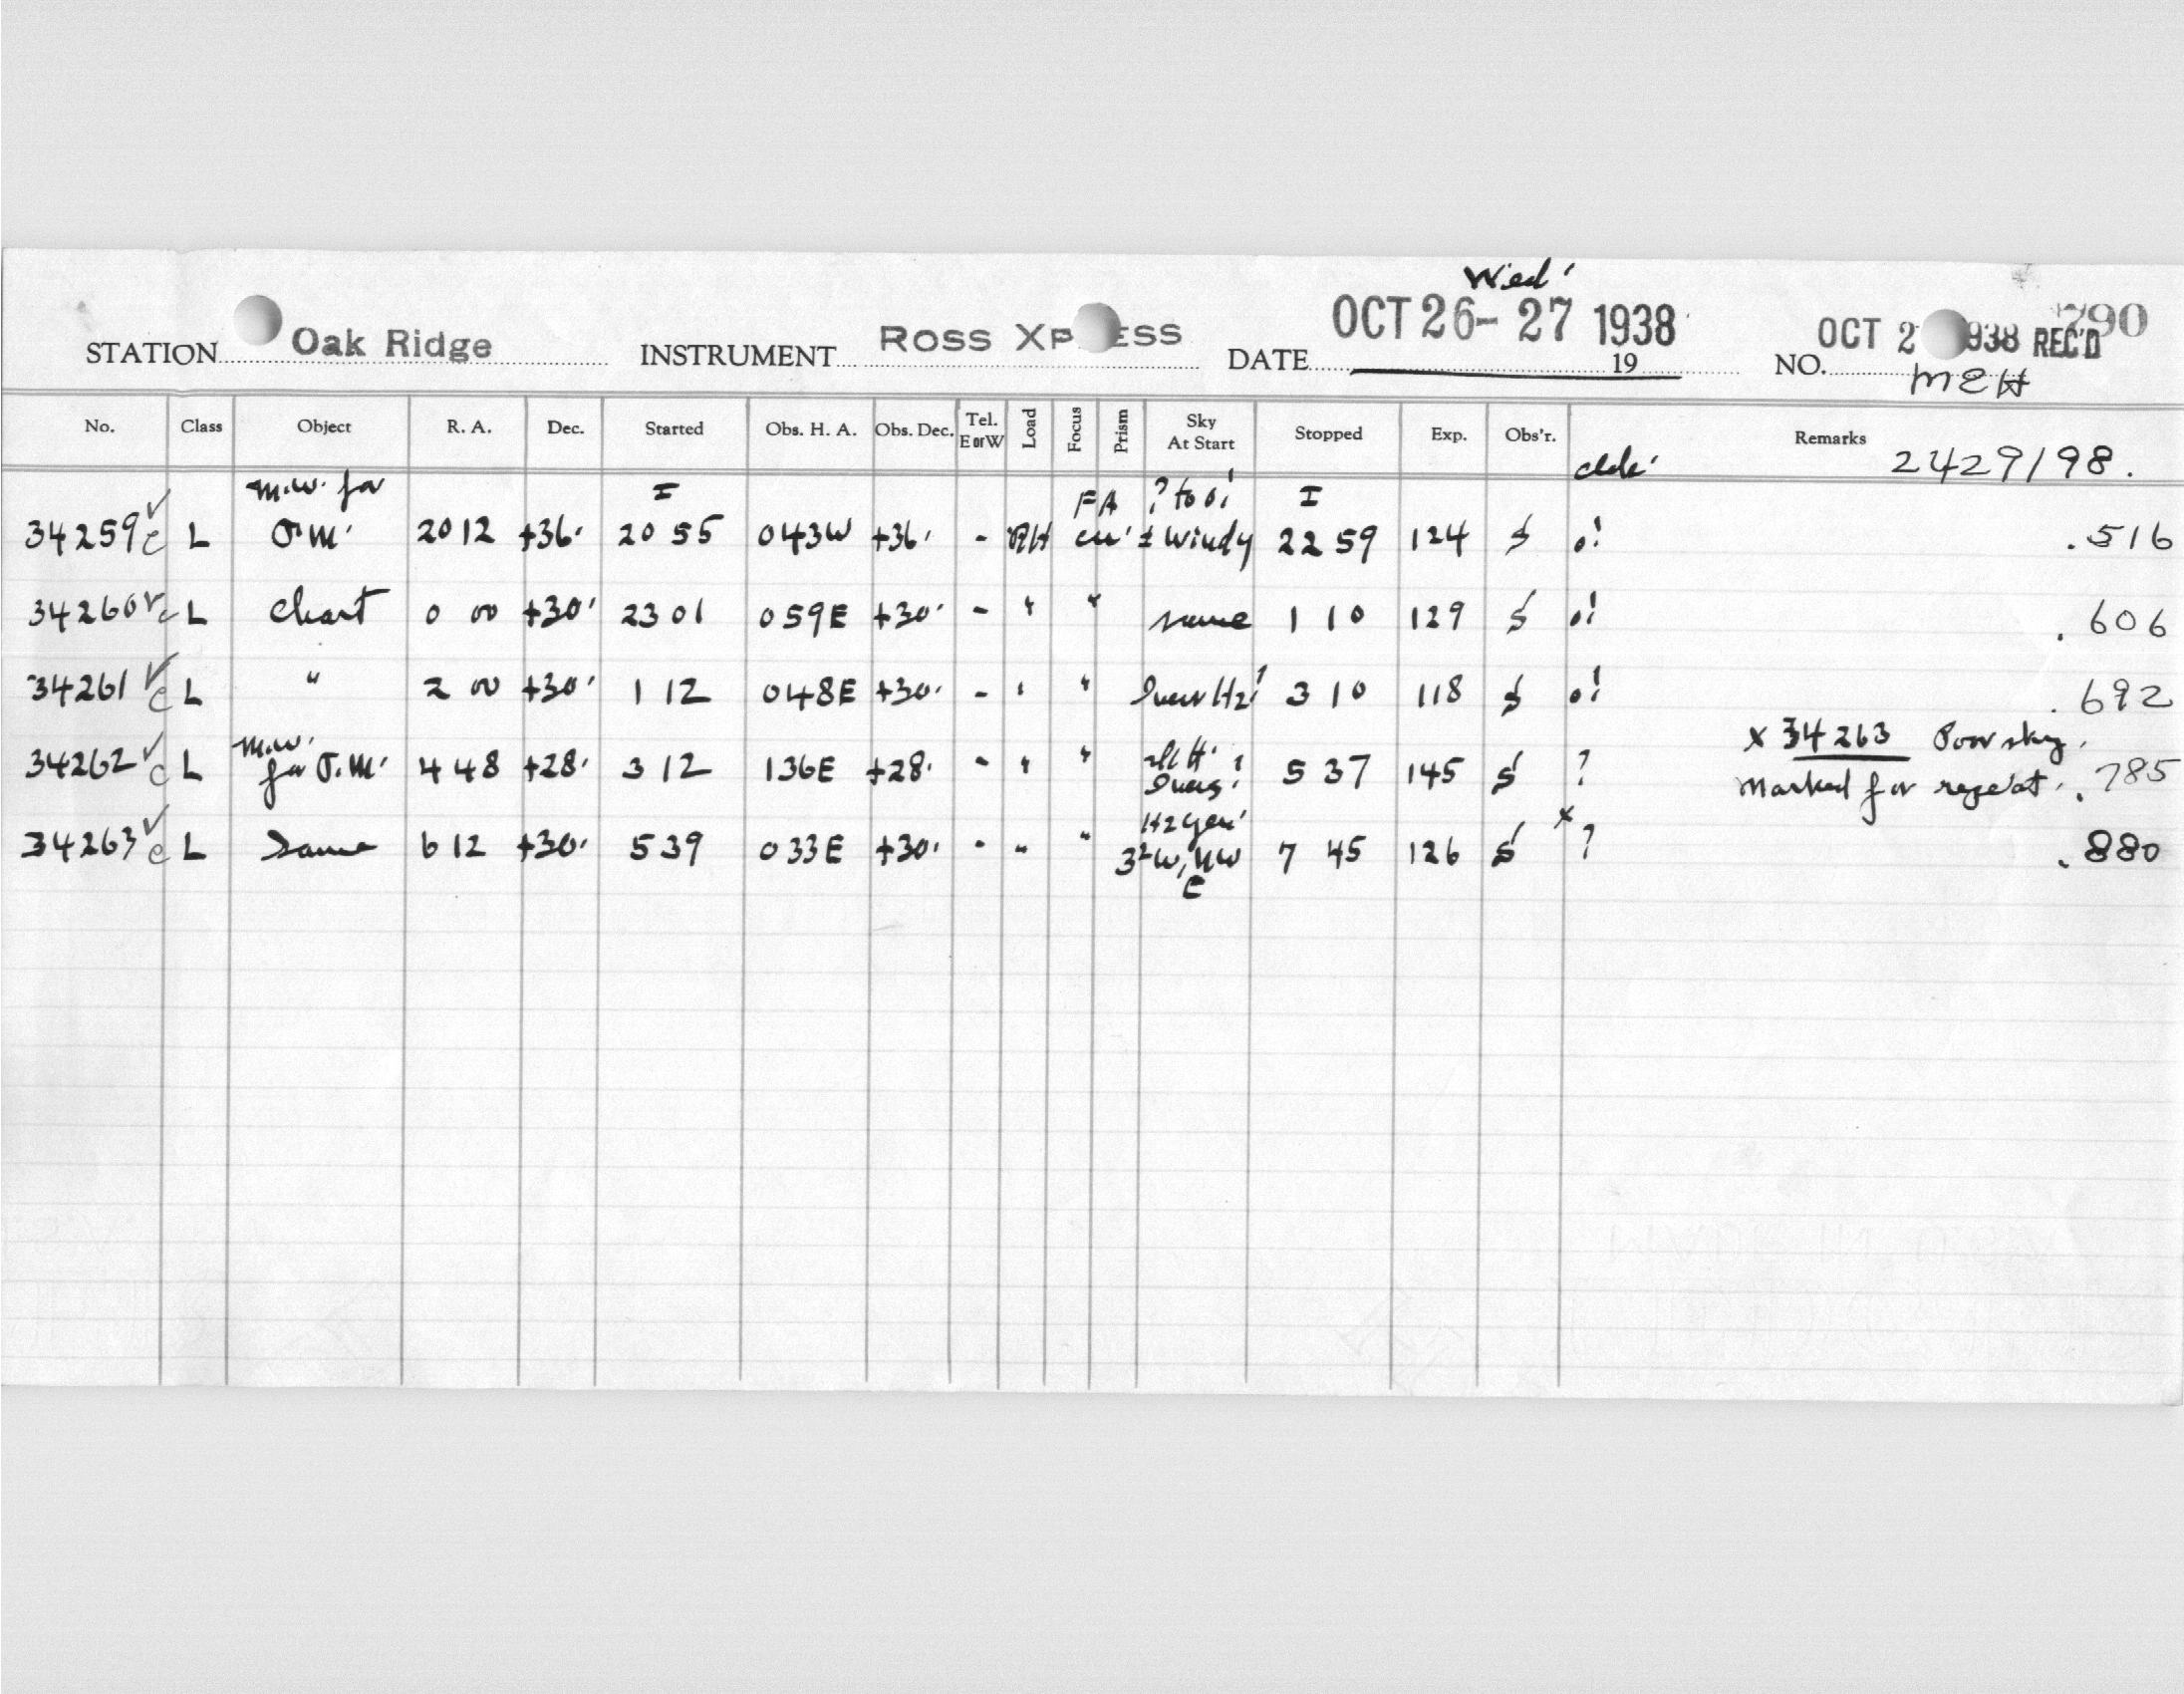 Wed'
STATION Oak Ridge INSTRUMENT ROSS XP ESS DATE OCT 26-27 1938 19 NO. OCT 2 938 REC'D 790
MEH
No. Class Object R. A. Dec. Started Obs. H. A. Obs. Dec. Tel. E or W Load Focus Prism Sky At Start Stopped Exp. Obs'r. Remarks
2429198.
m.w. for I FA ? to o! I
34259 c L J.M. 20 12 +36. 20 55 043W +36. - RH ± Windy 22 59 124 S o! .516
34260 c L Chart 0 00 +30' 23 01 059E +30' - " " same 1 10 129 S o! .606
34261 c L " 2 00 +30' 1 12 048E +30. - " " 3 10 118 S o! .692
m.w. x 34263 Poor sky.
34262 c L for J.M. 4 48 +28. 3 12 136E +28. - " " 5 37 145 S ? Marked for repeat. .785
34263 c L Same 6 12 +30. 5 39 033E +30. - " " W, NW 7 45 126 S x ? .880
E